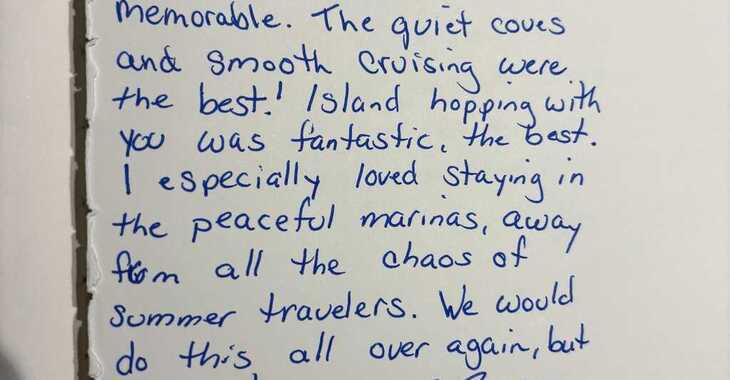 memorable. The quiet coves
and smooth cruising were
the best! Island hopping with
you was fantastic, the best.
I especially loved staying in
the peaceful marinas, away
from all the chaos of
summer travelers. We would
do this all over again, but